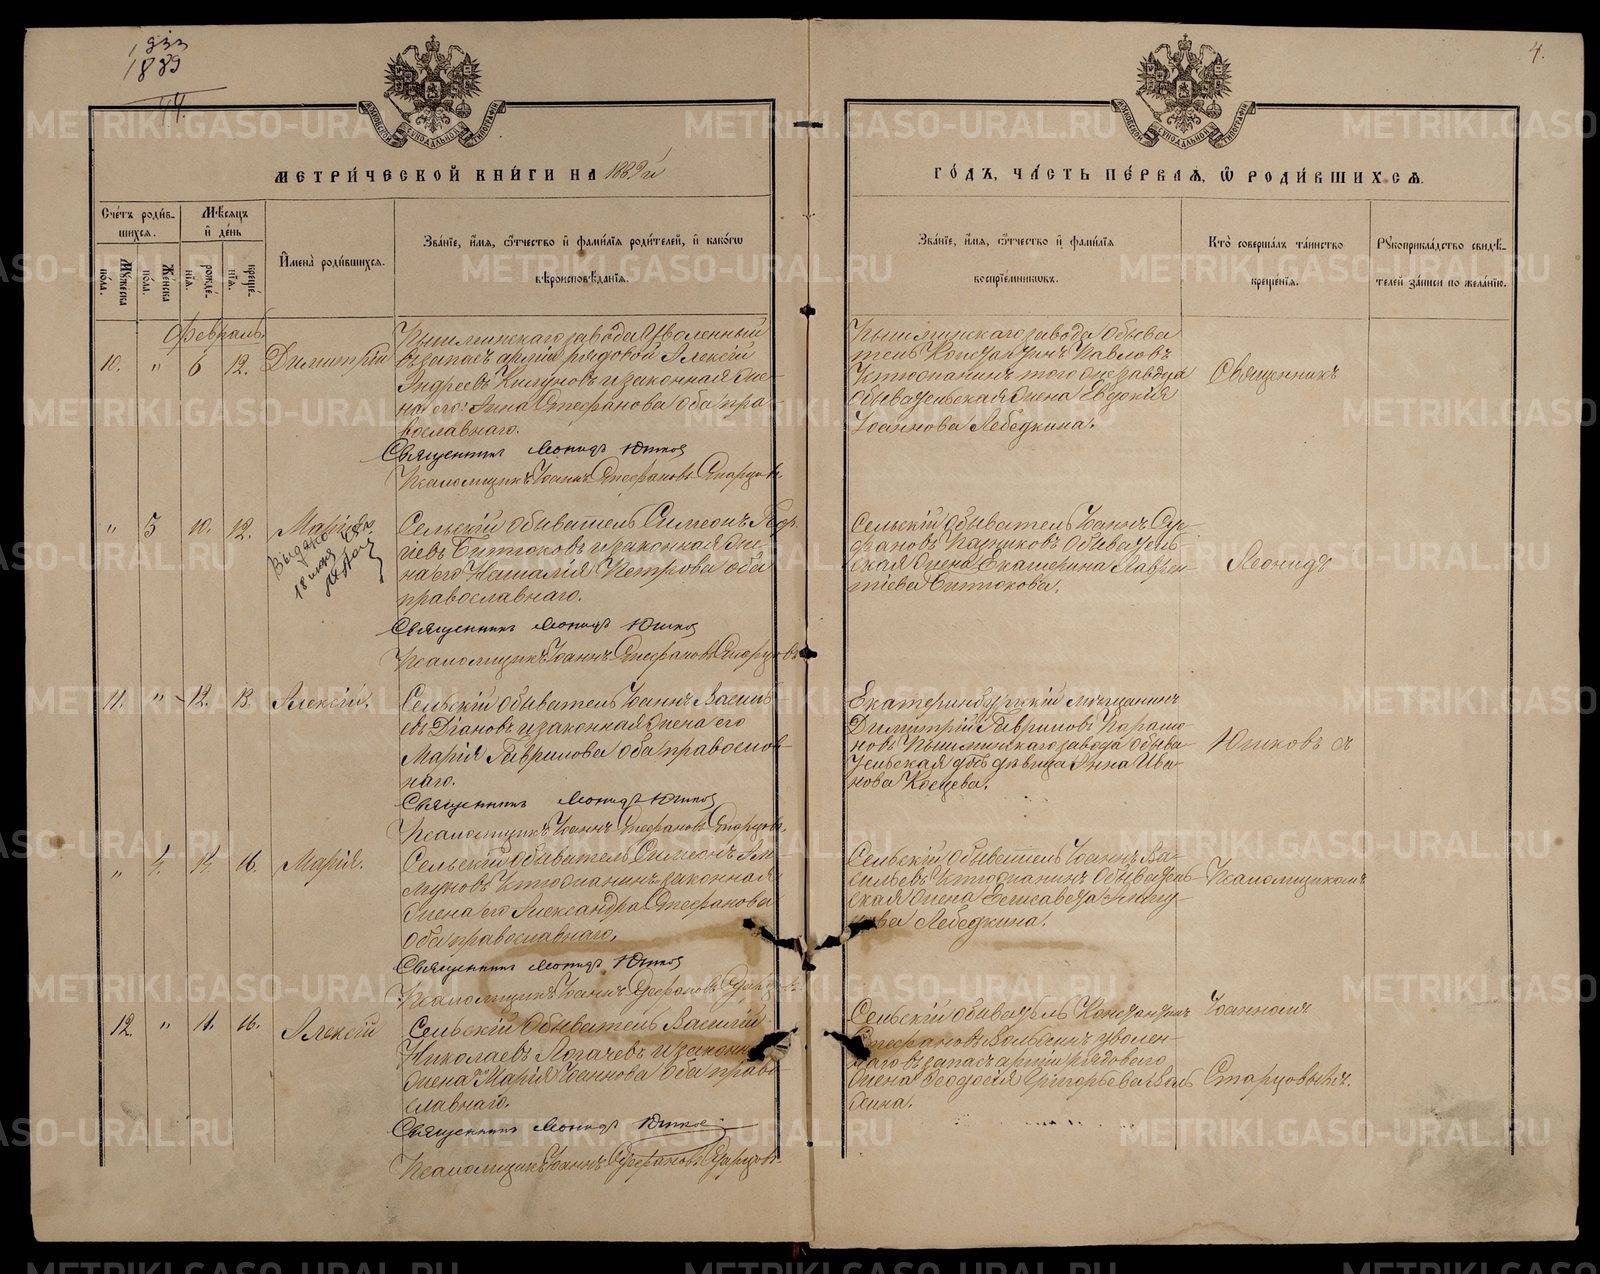 1933
1889
44.
4.
МЕТРИ́ЧЕСКОЙ КНИ́ГИ НА 1889 й
ГО́ДЪ, ЧА́СТЬ ПЕ́РВАѦ, Ѡ РОДИ́ВШИХСѦ.
Сче́тъ роди́в-
шихся.
Мѣсяцъ
и҆ де́нь
Мꙋжеска
по́ла.
Же́нска
по́ла.
рожде́-
нїѧ.
креще́-
нїѧ.
И҆мена̀ роди́вшихсѧ.
Зва́нїе, и҆́мѧ, ѻ҆́тчество и҆ фами́лїѧ роди́телей, и҆ како́гѡ
вѣроисповѣ́данїѧ.
Зва́нїе, и҆́мѧ, ѻ҆́тчество и҆ фами́лїѧ
воспрїе́мникѡвъ.
Кто̀ соверша́лъ та́инство
креще́нїѧ.
Рꙋкоприкла́дство свидѣ́-
телей за́писи по жела́нїю.
Февраль
10. " 6 12. Димитрій
Пышминскаго завода Уволенный
въ запасъ арміи рядовой Алексій
Андреевъ и законная же-
на его: Анна Стефанова оба пра-
вославнаго.
Священникъ Леонидъ Юшков
Псаломщикъ Іоаннъ Стефановъ Старцовъ
Пышминскаго завода обыва
тель Константинъ Павловъ
Ктюсианинъ того же завода
обывательская жена Евдокія
Іоаннова Лебедкина.
Священникъ
" 5 10. 12.
18 мая
Сельскій обыватель Симеонъ Геор-
гіевъ Битюковъ и законная же-
на его Наталія Петрова оба
православнаго.
Священникъ Леонидъ Юшков
Псаломщикъ Іоаннъ Стефановъ Старцовъ
Сельскій обыватель Іоаннъ Сте-
фановъ обыватель-
ская жена Екатерина Лаврен-
тіева Битюкова.
Леонидъ
11. " 12. 13. Алексій.
Сельскій обыватель Іоаннъ Василь
евъ Діановъ и законная жена его
Марія Гаврилова оба православ-
наго.
Священникъ Леонидъ Юшков
Псаломщикъ Іоаннъ Стефановъ Старцовъ
Екатеринбургскій мѣщанинъ
Димитрій Гавриловъ
новъ Пышминскаго завода обыва
тельская дѣвица Анна Ива-
нова
Юшковъ съ
" 4. 14. 16. Марія.
Сельскій обыватель Симеонъ
Ктюсианинъ законная
жена его Александра Стефанова
оба православнаго.
Священникъ Леонидъ Юшков
Псаломщикъ Іоаннъ Стефановъ Старцовъ
Сельскій обыватель Іоаннъ Ва-
сильевъ Ктюсианинъ обыватель-
ская жена Елисавета
Лебедкина.
Псаломщикомъ
12. " 11. 16. Алексій
Сельскій обыватель Василій
Николаевъ Логачевъ и законная
жена Марія Іоаннова оба право-
славнаго.
Священникъ Леонидъ Юшков
Псаломщикъ Іоаннъ Стефановъ Старцовъ
Сельскій обыватель Константинъ
Стефановъ уволен-
наго въ запасъ арміи рядового
жена Феодосія Григорьева
Іоанномъ
Старцовымъ.
METRIKI.GASO-URAL.RU